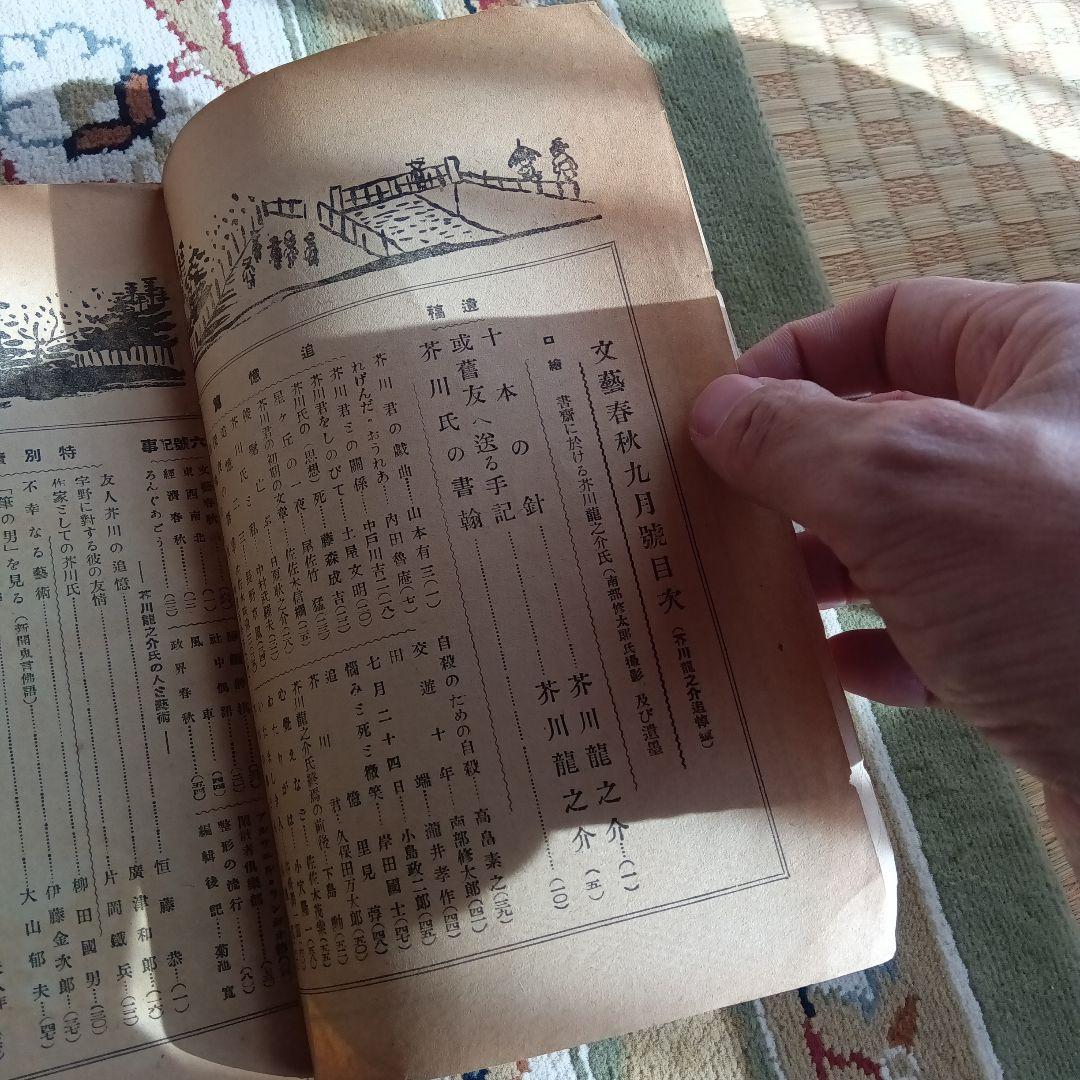 文藝春秋九月號目次（芥川龍之介追悼號）
口繪 書齋に於ける芥川龍之介氏（南部修太郎氏撮影 及び遺墨
遺稿
十本の針……芥川龍之介…（一）
或舊友へ送る手記……芥川龍之介…（五）
芥川氏の書翰……（一〇）
追憶
芥川君の戯曲…山本有三（一）
れげんだ・おうれあ…内田魯庵（七）
芥川君ミの關係…中戸川吉二（一八）
芥川君をしのびて…土屋文明（二〇）
芥川氏の（思想）死…藤森成吉（二二）
星ヶ丘の一夜…尾佐竹猛（二三）
芥川君の初期の文章…佐佐木信綱（二五）
自殺のための自殺…高畠素之（三九）
交遊十年…南部修太郎（四一）
田端…瀧井孝作（四四）
七月二十四日…小島政二郎（四五）
惱みミ死ミ微笑…岸田國士（四七）
追憶…里見弴（四八）
芥川君…久保田万太郎（五〇）
芥川龍之介氏終焉の前後…下島勳（五二）
心覺えなど…佐佐木茂索（五五）
特別
友人芥川の追憶……恒藤恭（一）
――芥川龍之介氏の人ミ藝術――
宇野に對する彼の友情……廣津和郎（一六）
作家ミしての芥川氏……片岡鐵兵（二二）
不幸なる藝術……柳田國男（三〇）
「筆の男」を見る（新聞鬼言佛語）……伊藤金次郎（三七）
大山郁夫…（四七）
號記事
文藝春秋
東西南北
經濟春秋…（三三）
ろんぐあごう
社中偶語…（四四）
風車
政界春秋…（五四）
整形の流行
編輯後記…菊池寬